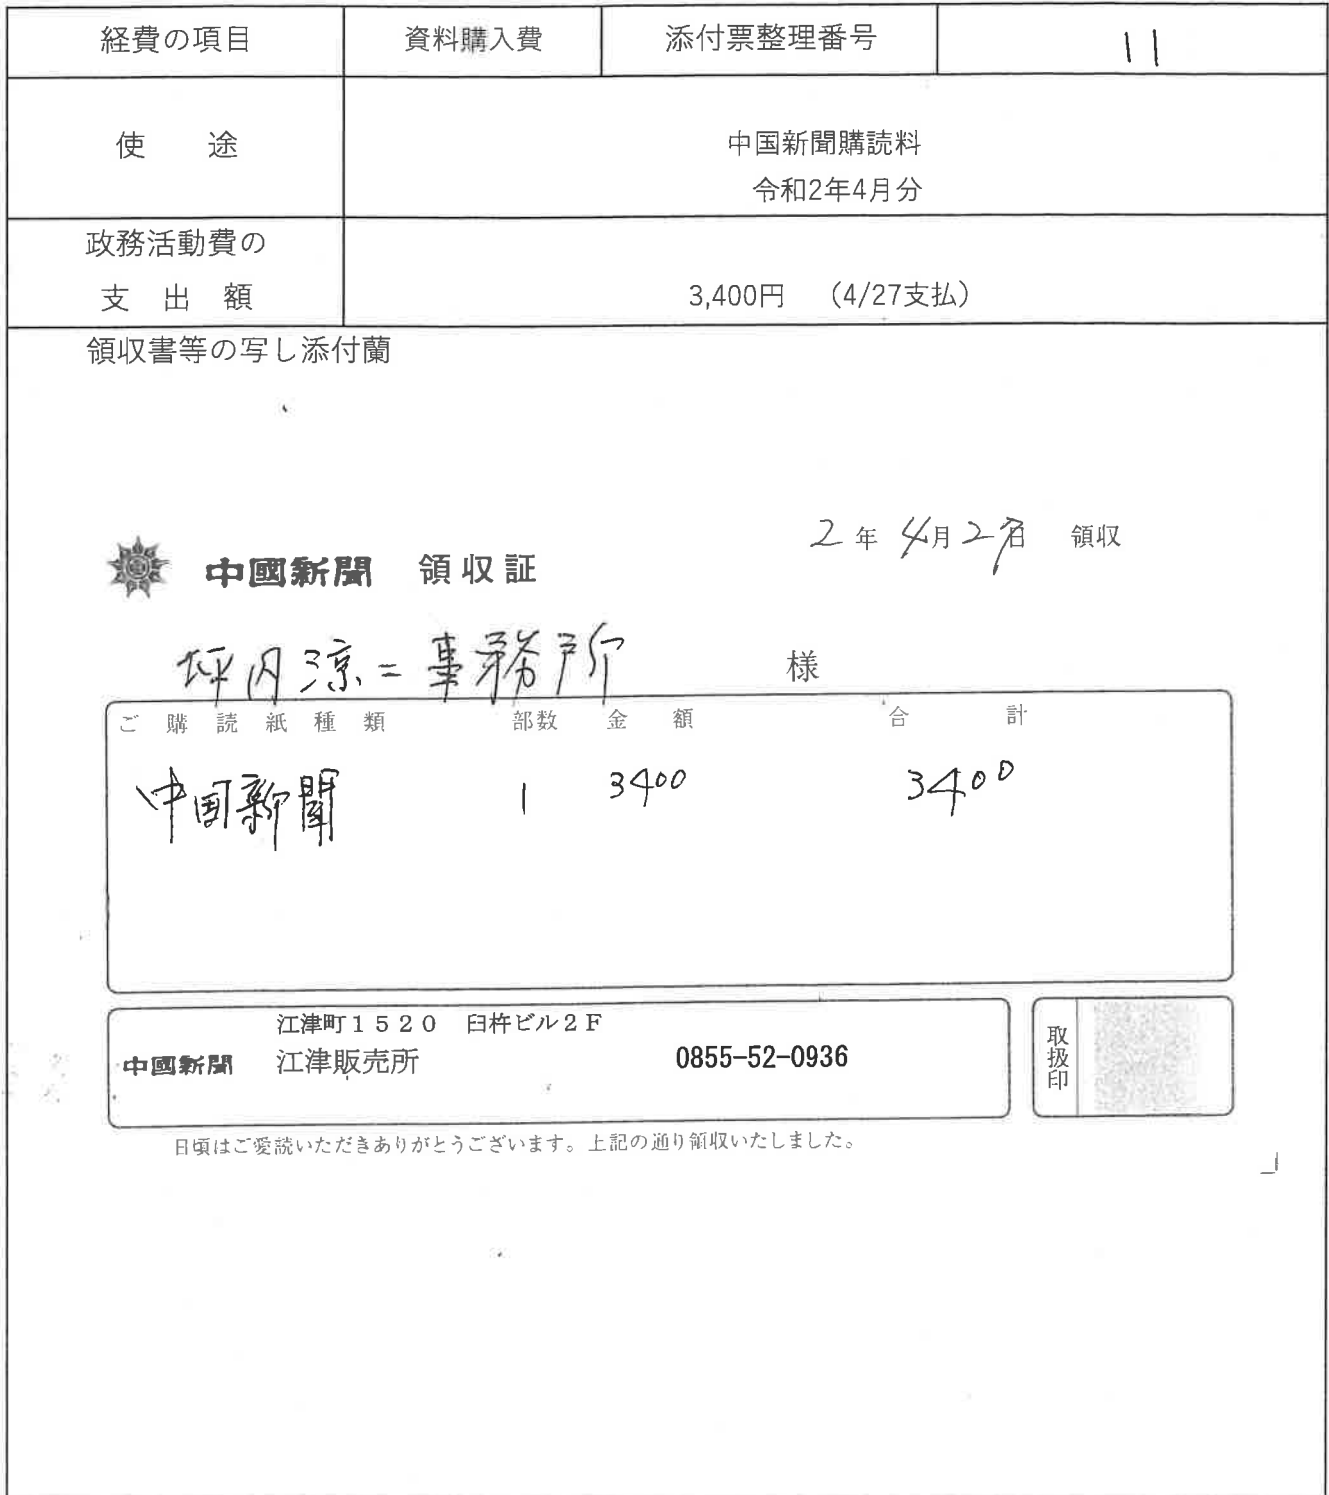 経費の項目 資料購入費 添付票整理番号 11
使 途
中国新聞購読料
令和2年4月分
政務活動費の
支 出 額
3,400円 （4/27支払）
領収書等の写し添付蘭
2年4月27日 領収
中國新聞 領収証
坪内涼二事務所 様
ご購読紙種類 部数 金額 合計
中国新聞 1 3400 3400
江津町1520 臼杵ビル2F
中國新聞 江津販売所 0855-52-0936
取扱印
日頃はご愛読いただきありがとうございます。上記の通り領収いたしました。